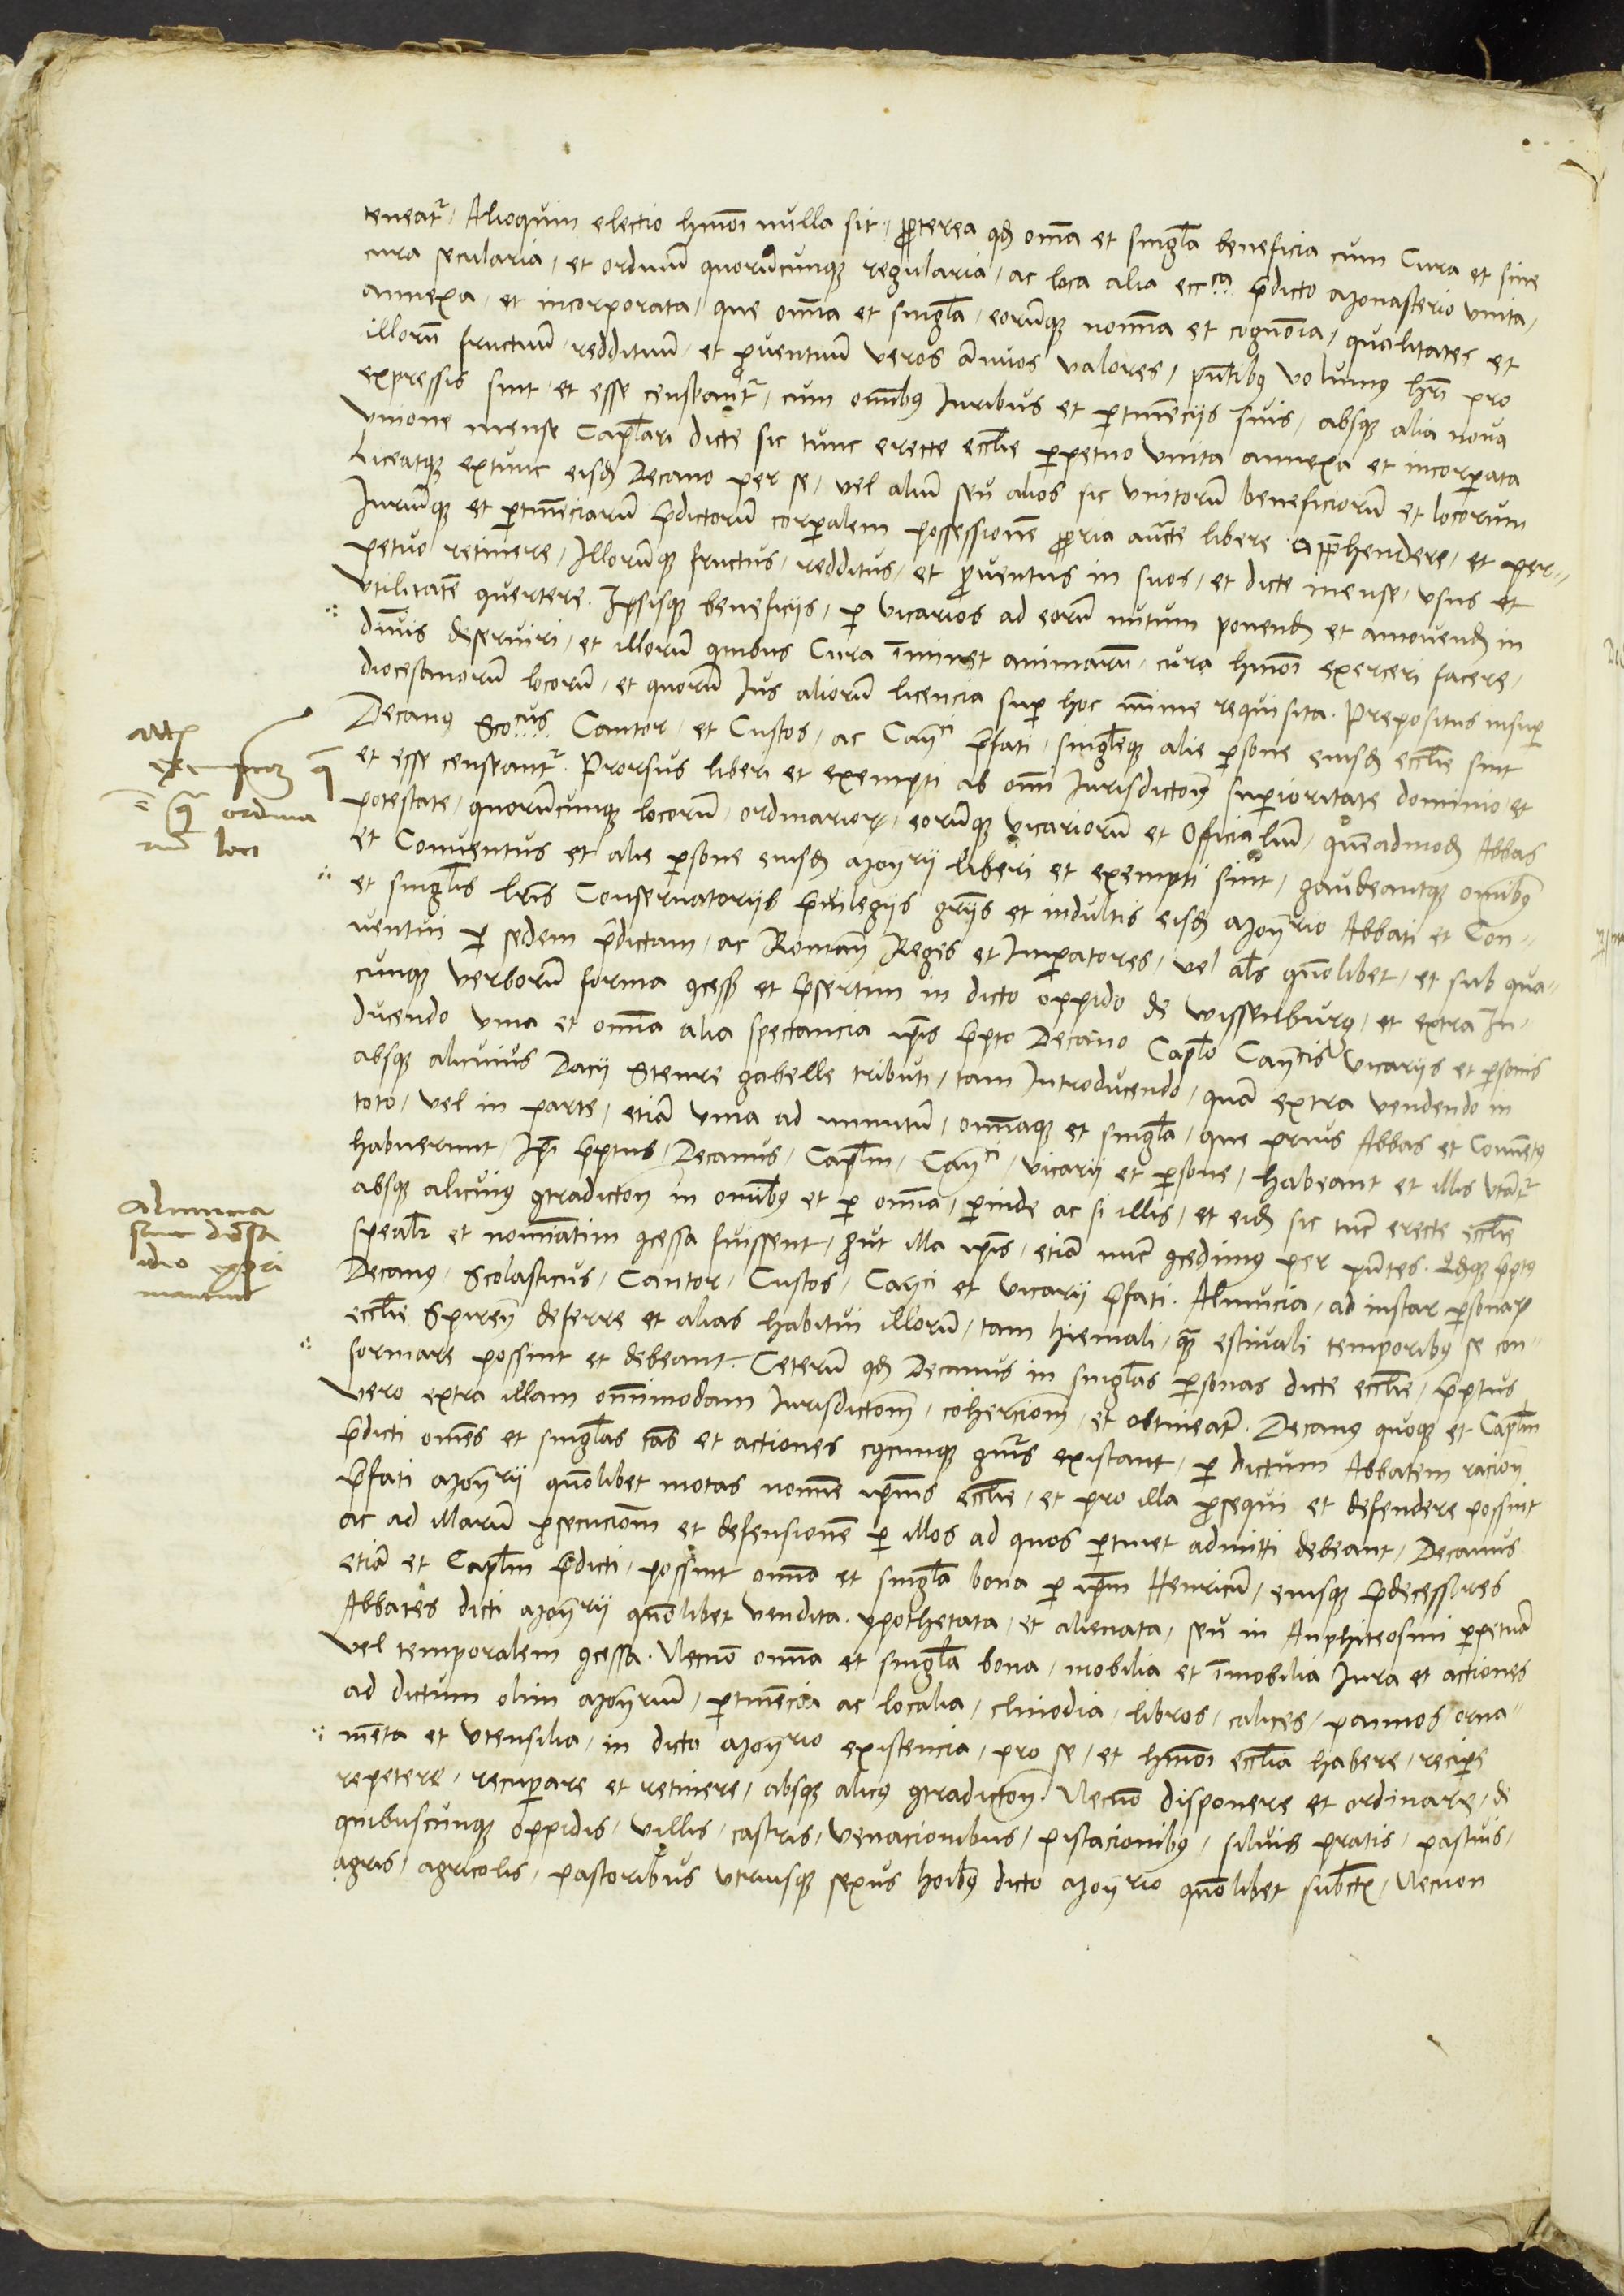 teneatr, Alioquin electio hmoi nulla sit, Proterea qd oma et singla beneficia cum Cura et sine
cura secularia, et ordinum quorumcunque regularia, ac loca alia eccca predicto Monasterio unita,
annexa, et incorporata, que omnia et singla, eorumque nomina et cognomia, qualitates et
illorum fructuum, reddituum, et proventuum veros annuos valores, pntibus volumus hri pro
expressis sint et esse censeantr, cum omnibus Iuribus et pertinenciis suis, absque alia nova
Unione mense Caplari dicte sic tunc erecte ecclie perpetuo unita annexa et incorporata
Liceatque extunc eisdem Decano per se, vel alium seu alios sic unitorum beneficiorum et locorum
Iuriumque et pertinenciarum predictorum corporalem possessionem propria aucte libere apprehendere, et per-
petuo retinere, Illorumque fructus, redditus, et proventus in suos, et dicte mense, usus et
Utilitatem convertere. Ipsisque beneficiis, per vicarios ad eorum nutum ponendos et amovendos in
divinis deserviri, et illorum quibus Cura iminet animarum, cura hmoi exerceri facere,
diocesanorum locorum, et quorum Ius aliorum licencia super hoc minime requisita. Prepositus insuper
Decanus Scocus Cantor, et Custos, ac Canci prefati, singleque alie persone eiusdem ecclie sint
et esse censeantr. Prorsus liberi et exempti ab omni Iurisdictone superioritate dominio et
potestate, quorumcunque locorum, ordinariorum, eorumque vicariorum et Officialium, quemadmodum Abbas
et Conventus et alie persone eiusdem Monrii liberi et exempti sint, gaudeantque omnibus
et singlis lris Conservatoriis privilegiis graciis et indultis eisdem Monrio Abbati et Con-
ventui per sedem predictam, ac Roman Reges et Imperatores, vel als quomolibet, et sub qua-
cunque verborum forma concess et presertim in dicto oppido de Wissenburg, et extra In-
ducendo vina et omnia alia spectancia ipsis prepto Decano Caplo Cancis Vicariis et personis
absque alicuius Dacii Steure gabelle tributi, tam Introducendo, quam extra vendendo in
toto, vel in parte, etiam vina ad minutum, omniaque et singla, que prius Abbas et Conventus
habuerunt, Ipsi preptus, Decanus, Caplm, Canci, vicarii et persone, habeant et illis utantr
absque alicuius contradicton in omnibus et per omnia, perinde ac si illis, et eidem sic tunc erecte ecclie
spealr et nominatim concessa fuissent, prout illa ipsis, etiam nunc concedimus per pntes. Quodque preptus
Decanus, Scolasticus, Cantor, Custos, Canci et Vicarii prefati. Almucia, ad instar personarum
ecclie Spiren deferre et alias habitui illorum, tam hiemali, quam estivali temporibus se con-
formare possint et debeant. Ceterum quod Decanus in singlas personas dicte ecclie, preptus
vero extra illam omnimodam Iurisdictonem, cohercionem, et obtineat. Decanus quoque et Caplm
predicti omnes et singlas cas et actiones cuiuscunque gnris existant, per dictum Abbatem racion
prefati Monrii quomolibet motas nomine ipsius ecclie, et pro illa prosequi et defendere possint
ac ad illarum prosecucionem et defensionem per illos ad quos pertinet admitti debeant, Decanus
etiam et Caplm predicti, possint omnia et singla bona per ipsum Henricum, eiusque predecessores
Abbates dicti Monrii quomolibet vendita, ypothetata, et alienata, seu in Anphiteosim perpetuam
vel temporalem concessa. Necnon omnia et singla bona, mobilia et imobilia Iura et actiones
ad dictum olim Monrium, pertinencia ac localia, clinodia, libros, calices, pannos orna-
menta et utensilia, in dicto Monrio existencia, pro se, et hmoi ecclia habere, recipe
repetere, recuperare et retinere, absque alicus contradicton. Necnon disponere et ordinare, de
quibuscunque oppidis, villis, castris, venacionibus, pistacionibus, silvis pratis, pastuis,
agris, agricolis, pastoribus utriusque sexus hoibus dicto Monrio quomolibet subctis, Necnon
exempcionem
ordina
rium loci
Almucia
sunt
ideo